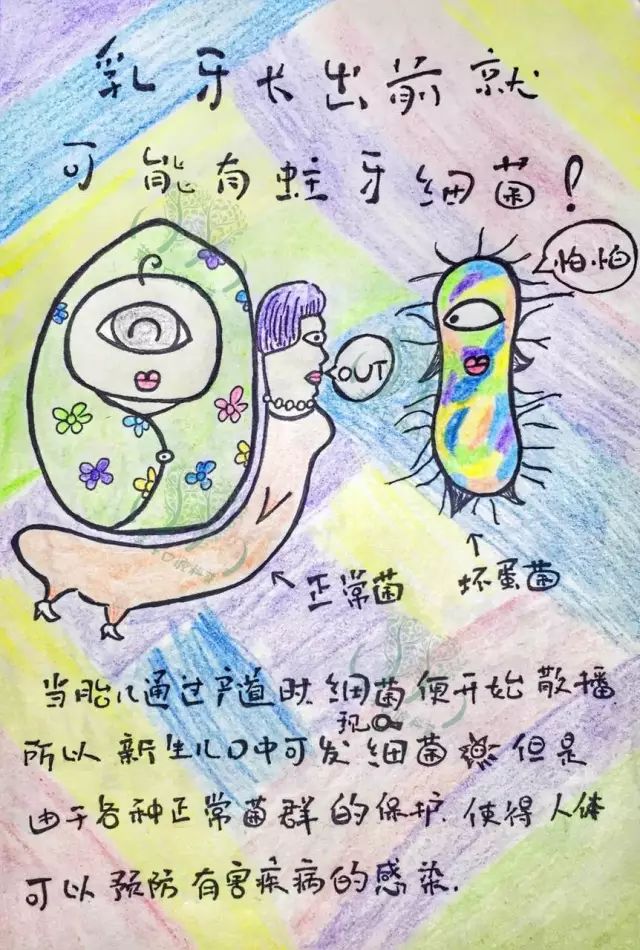 乳牙长出前就
可能有蛀牙细菌！
怕怕
OUT
正常菌
坏蛋菌
当胎儿通过产道时，细菌便开始散播
所以新生儿口中可发现细菌 但是
由于各种正常菌群的保护，使得人体
可以预防有害疾病的感染．